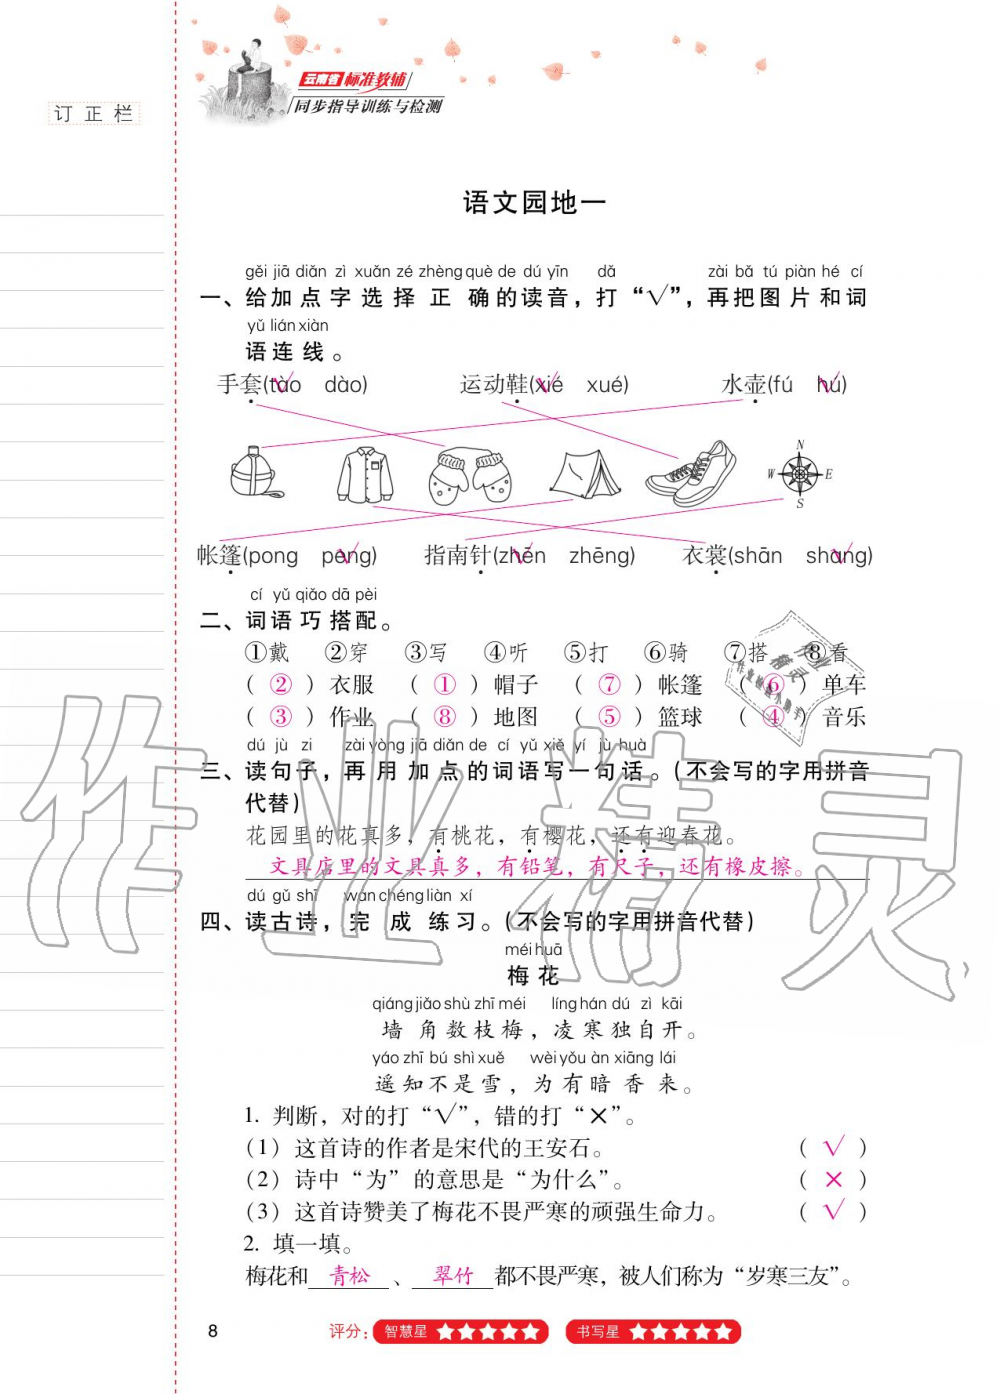 订正栏
云南省标准教辅
同步指导训练与检测
语文园地一
gěi jiā diǎn zì xuǎn zé zhèng què de dú yīn dǎ zài bǎ tú piàn hé cí
一、给加点字选择正确的读音，打“√”，再把图片和词
yǔ lián xiàn
语连线。
手套(tào dào) 运动鞋(xié xué) 水壶(fú hú)
N
W E
S
帐篷(pong peng) 指南针(zhēn zhēng) 衣裳(shān shang)
cí yǔ qiǎo dā pèi
二、词语巧搭配。
①戴 ②穿 ③写 ④听 ⑤打 ⑥骑 ⑦搭 ⑧看
（②）衣服 （①）帽子 （⑦）帐篷 （⑥）单车
（③）作业 （⑧）地图 （⑤）篮球 （④）音乐
dú jù zi zài yòng jiā diǎn de cí yǔ xiě yí jù huà
三、读句子，再用加点的词语写一句话。(不会写的字用拼音
代替)
花园里的花真多，有桃花，有樱花，还有迎春花。
文具店里的文具真多，有铅笔，有尺子，还有橡皮擦。
dú gǔ shī wán chéng liàn xí
四、读古诗，完成练习。(不会写的字用拼音代替)
méi huā
梅花
qiáng jiǎo shù zhī méi líng hán dú zì kāi
墙角数枝梅，凌寒独自开。
yáo zhī bú shì xuě wèi yǒu àn xiāng lái
遥知不是雪，为有暗香来。
1. 判断，对的打“√”，错的打“×”。
(1) 这首诗的作者是宋代的王安石。 ( √ )
(2) 诗中“为”的意思是“为什么”。 ( × )
(3) 这首诗赞美了梅花不畏严寒的顽强生命力。 ( √ )
2. 填一填。
梅花和 青松 、 翠竹 都不畏严寒，被人们称为“岁寒三友”。
8 评分： 智慧星 ★★★★★ 书写星 ★★★★★
作业精灵